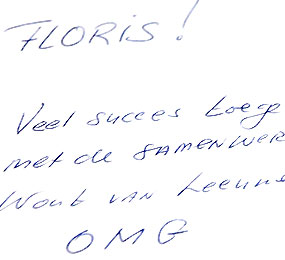 FLORIS!
Veel succes toege
met de SAMENWER
Wout van Leeuw
OMG